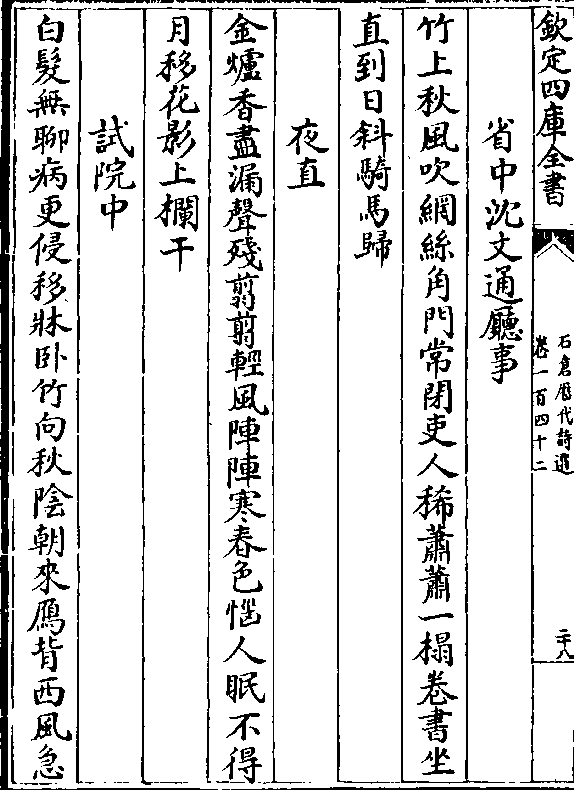 欽定四庫全書
石倉歷代詩選
卷一百四十二
二十八
省中沈文通廳事
竹上秋風吹網絲角門常閉吏人稀蕭蕭一榻卷書坐
直到日斜騎馬歸
夜直
金爐香盡漏聲殘翦翦輕風陣陣寒春色惱人眠不得
月移花影上欄干
試院中
白髮無聊病更侵移牀卧竹向秋隂朝來鴈背西風急